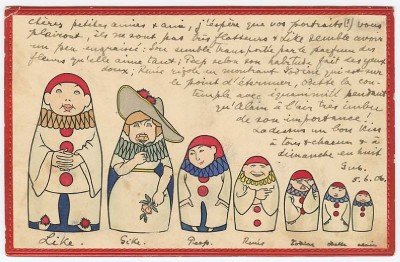 chères petites amies & ami, j'espère que vos portraits (!) vous
plairont, ils ne sont pas très flatteurs & Like semble avoir
un peu engraissé: Son semble transportée par le parfum des
fleurs qu'elle aime tant; Peop selon son habitude fait des yeux
doux; Renée rigole en montrant qui est sur
le point d'éternuer, la con-
temple avec pendant
qu'Alain à l'air très imbu
de son importance!
Là dessus un bon kiss
à tous & chacun & à
dimanche en huit
5.6.06.
Like.
Gike.
Peop.
Renée